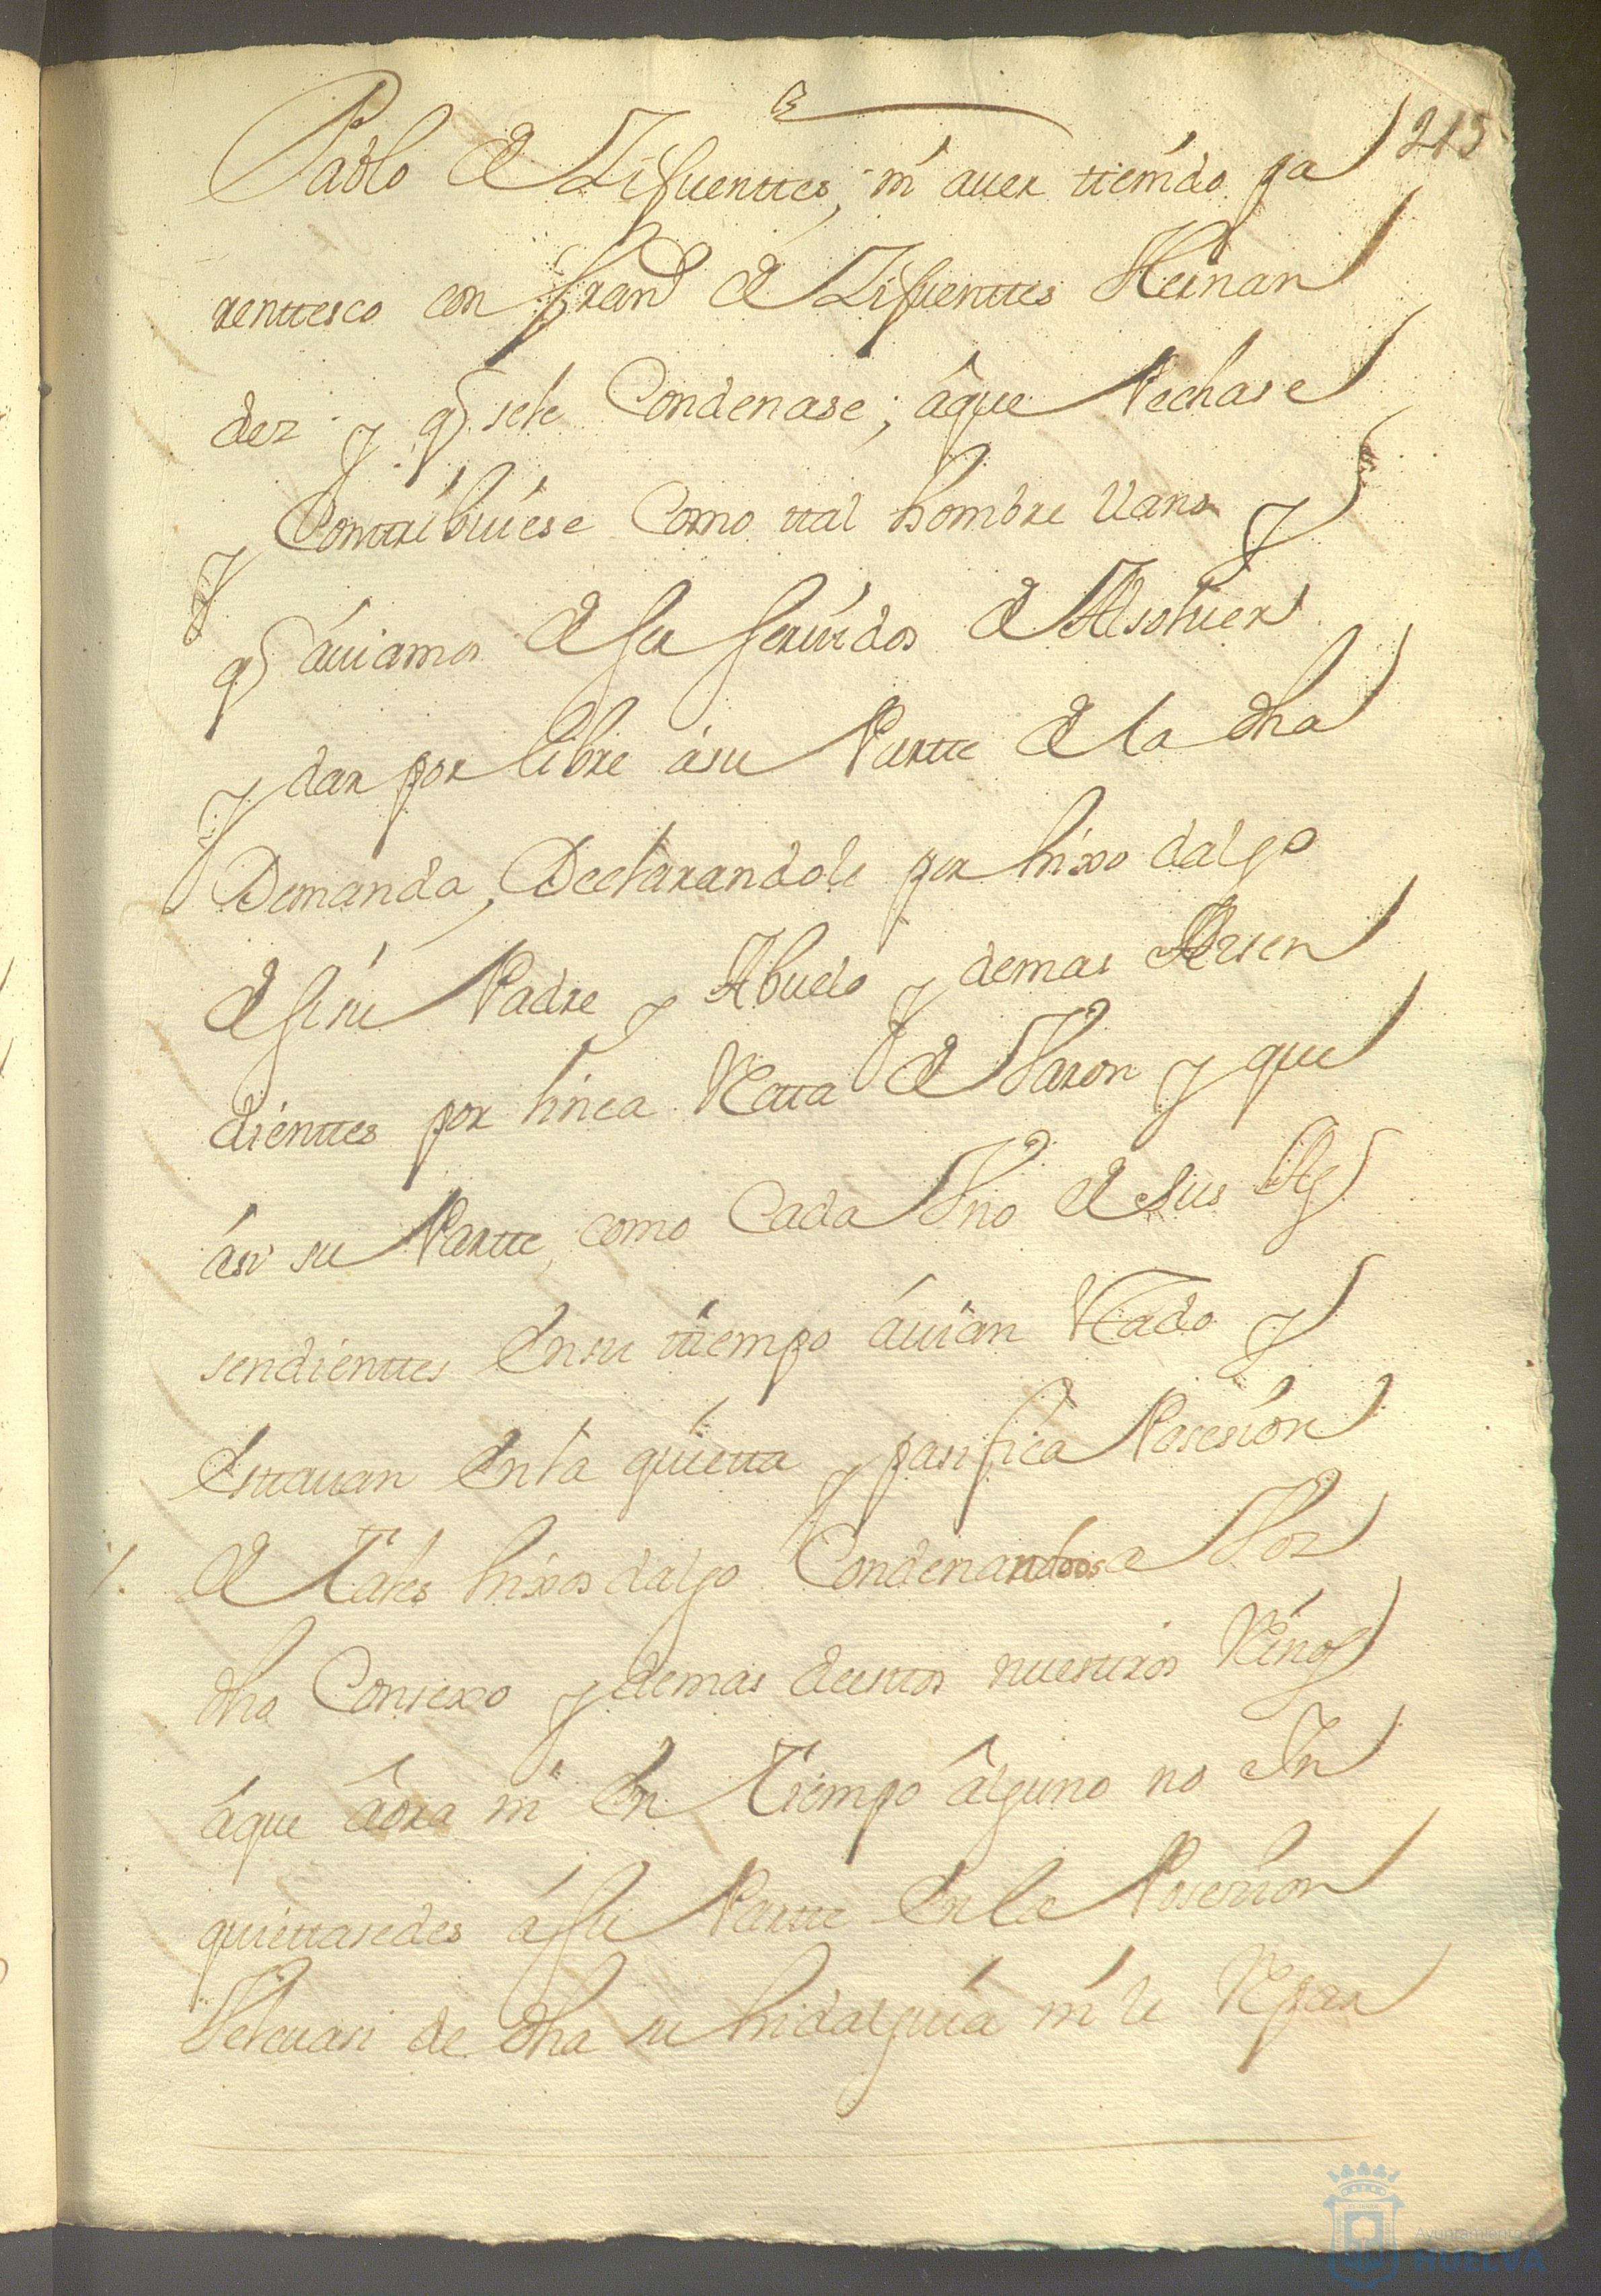 215
Pablo de Zifuenttes, ni auer ttenido pa
renttesco con Fran.co de Zifuenttes Hernan
dez y q sele Condenase; âque Pechase
y Conttribuiese Como ttal hombre llano y
q áuiamos de ser seruidos de Absoluer
y dar por libre ásu Partte de la dha
Demanda, Declarandole por hixo dalgo
de su Padre y Abuelo y demas Aszen
dienttes por linea Rectta de Varon y que
ási su Partte, como Cada Vno de sus As
sendienttes en su ttiempo áuian Estado y
esttauan en la quietta y pasifica Posesion
de Tales hixos dalgo Condenandoos a Vos
dho Consexo y demas destos nuestros Reinos
áque âora ni en Tiempo âlguno no In
quiettasedes á su Partte en la Posesion
Velcuasi de dha su hidalguia ni le Repar
Ayuntamiento de
HUELVA